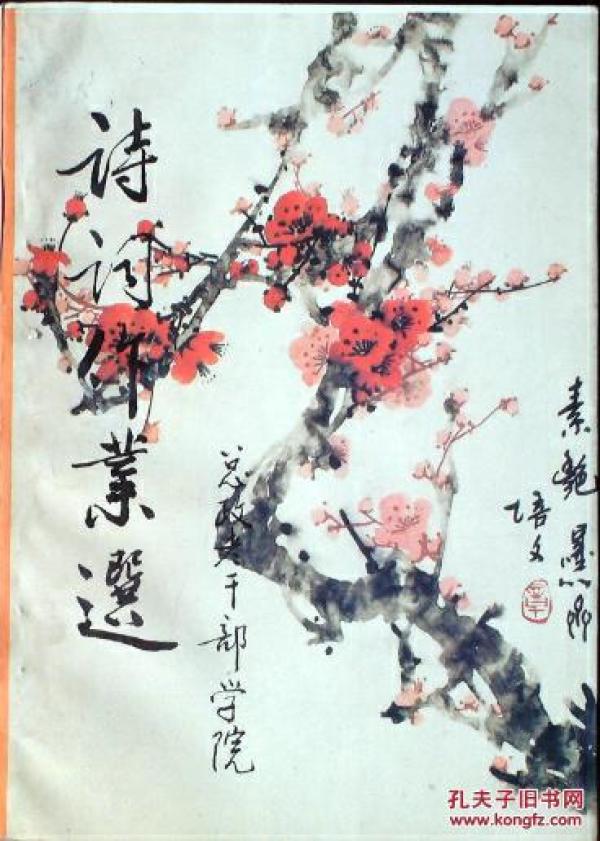 詩词作業選
总政老干部学院
素艳
培文
孔夫子旧书网
www.kongfz.com